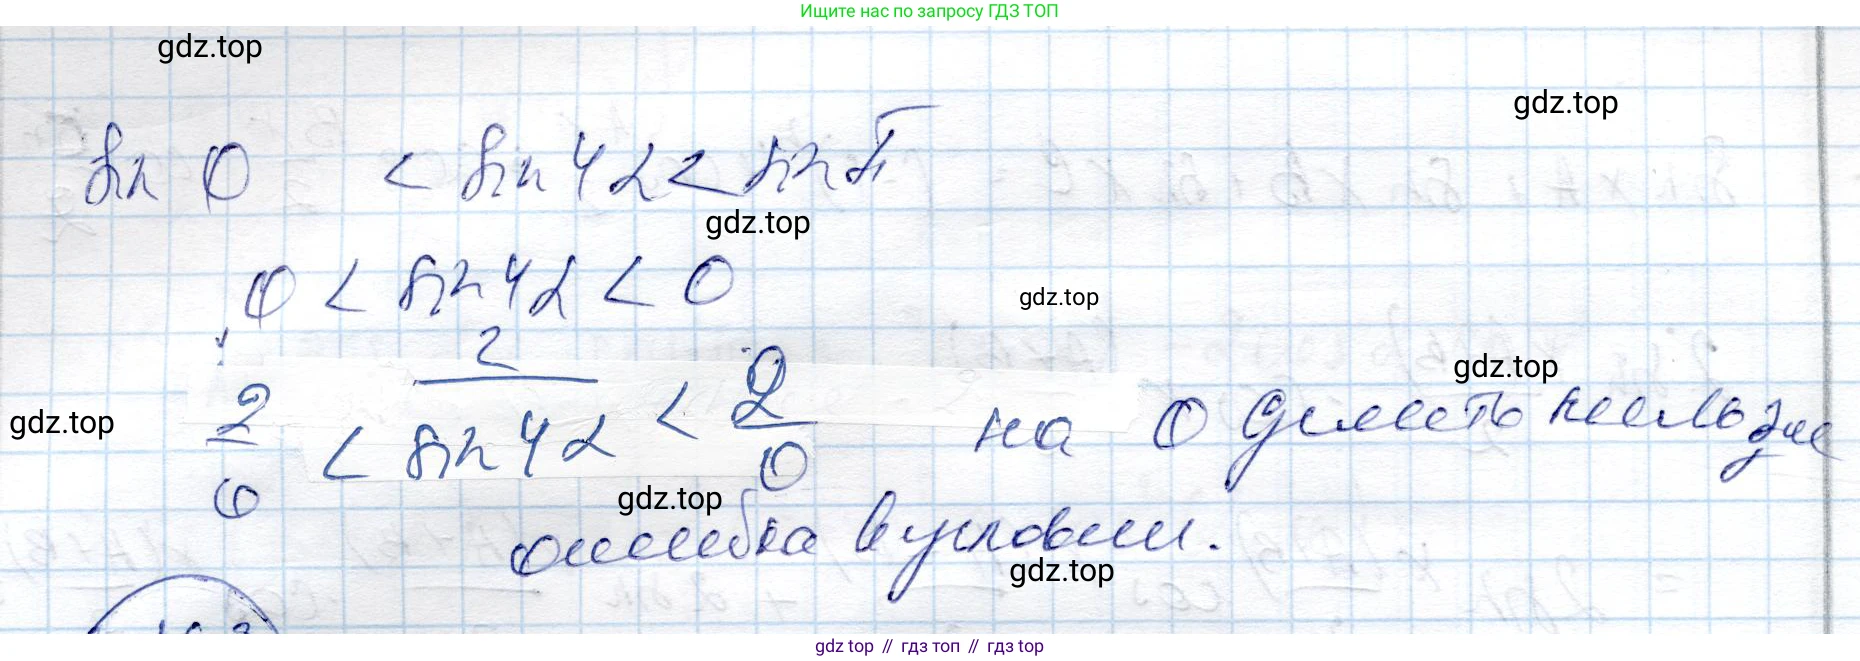 Ищите нас по запросу ГДЗ ТОП
gdz.top
gdz.top
sin 0 < sin 4α < sin π
gdz.top
0 < sin 4α < 0
gdz.top
gdz.top
2/0 < 2/sin 4α < 2/0 на 0 делить нельзя
gdz.top
gdz.top
ошибка в условии.
gdz.top
gdz top // гдз топ // gdz top